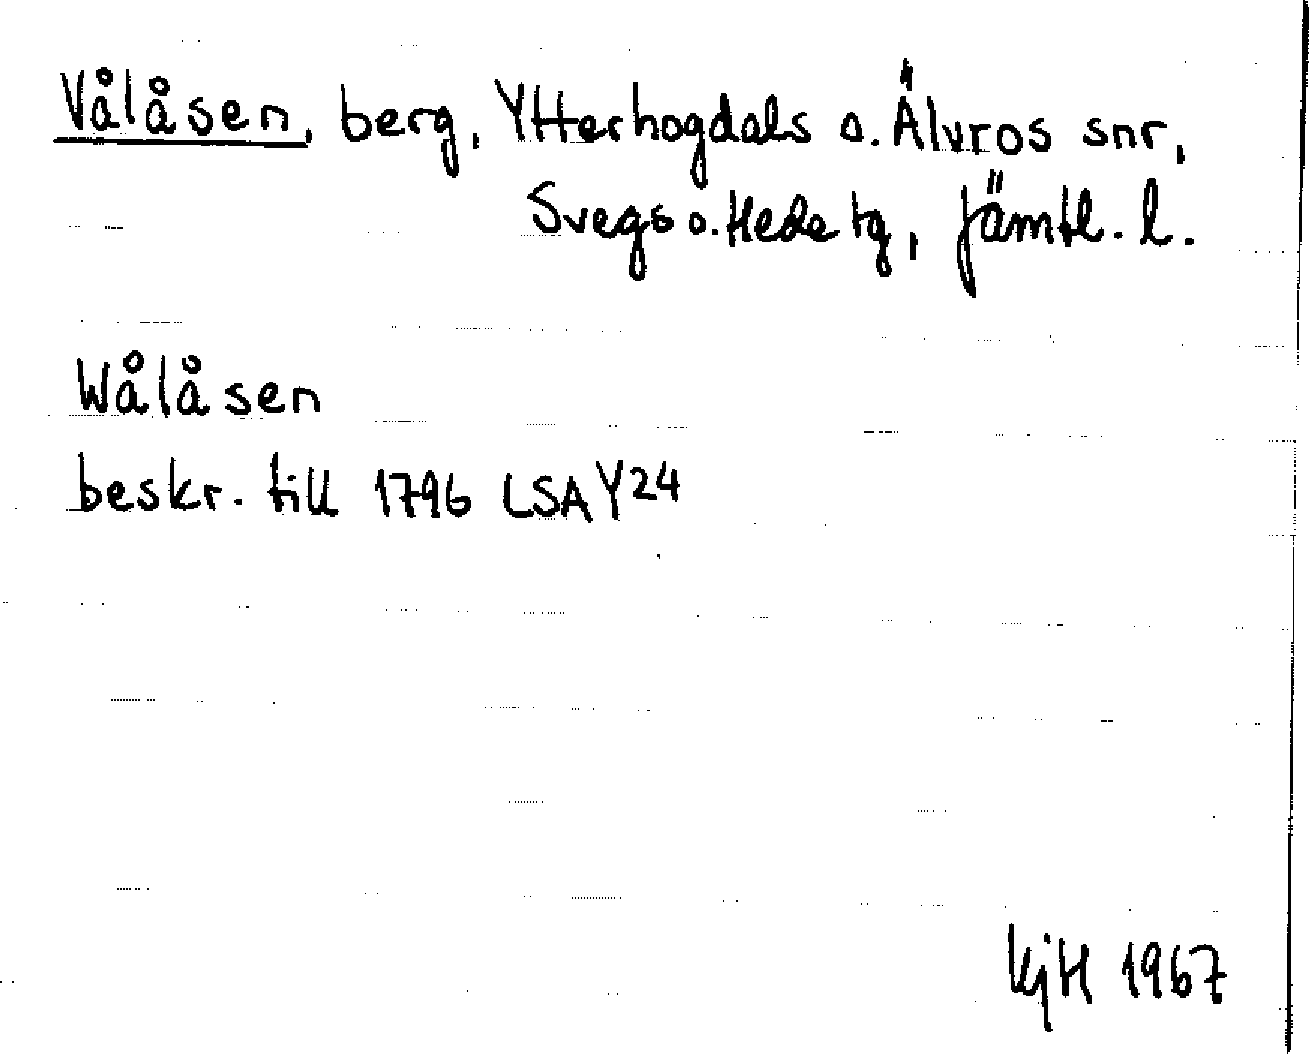 Vålåsen, berg, Ytterhogdals o. Älvros snr,
Svegs o. Hede tg, Jämtl. l.
Wålåsen
beskr. till 1796 LSA Y24
KjH 1967